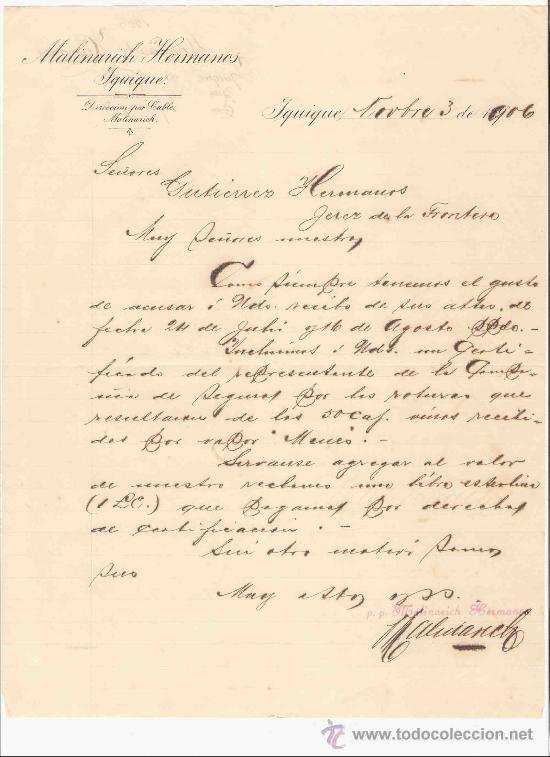 Malinarich Hermanos,
Iquique.
Dirección por Cable,
Malinarich.
Iquique, Novbre 3 de 1906
Señores
Gutierrez Hermanos
Jerez de la Frontera
Muy Señores nuestros
Como siempre tenemos el gusto
de acusar á Uds. recibo de sus attas. de
fecha 24 de Julio y 16 de Agosto Ppdo.-
Incluimos á Uds. un Certi-
ficado del representante de la Compa-
ñia de Seguros por las roturas que
resultaron de los 50 caj. vinos reci-
dos por vapor "Menes".-
Servanse agregar al valor
de nuestro reclamo una libra esterlina
(1 £) que pagamos por derechos
de certificacion.-
Sin otro motivo somos
sus
Muy attos y ss.
p. p. Malinarich Hermanos
Malinarich
www.todocoleccion.net